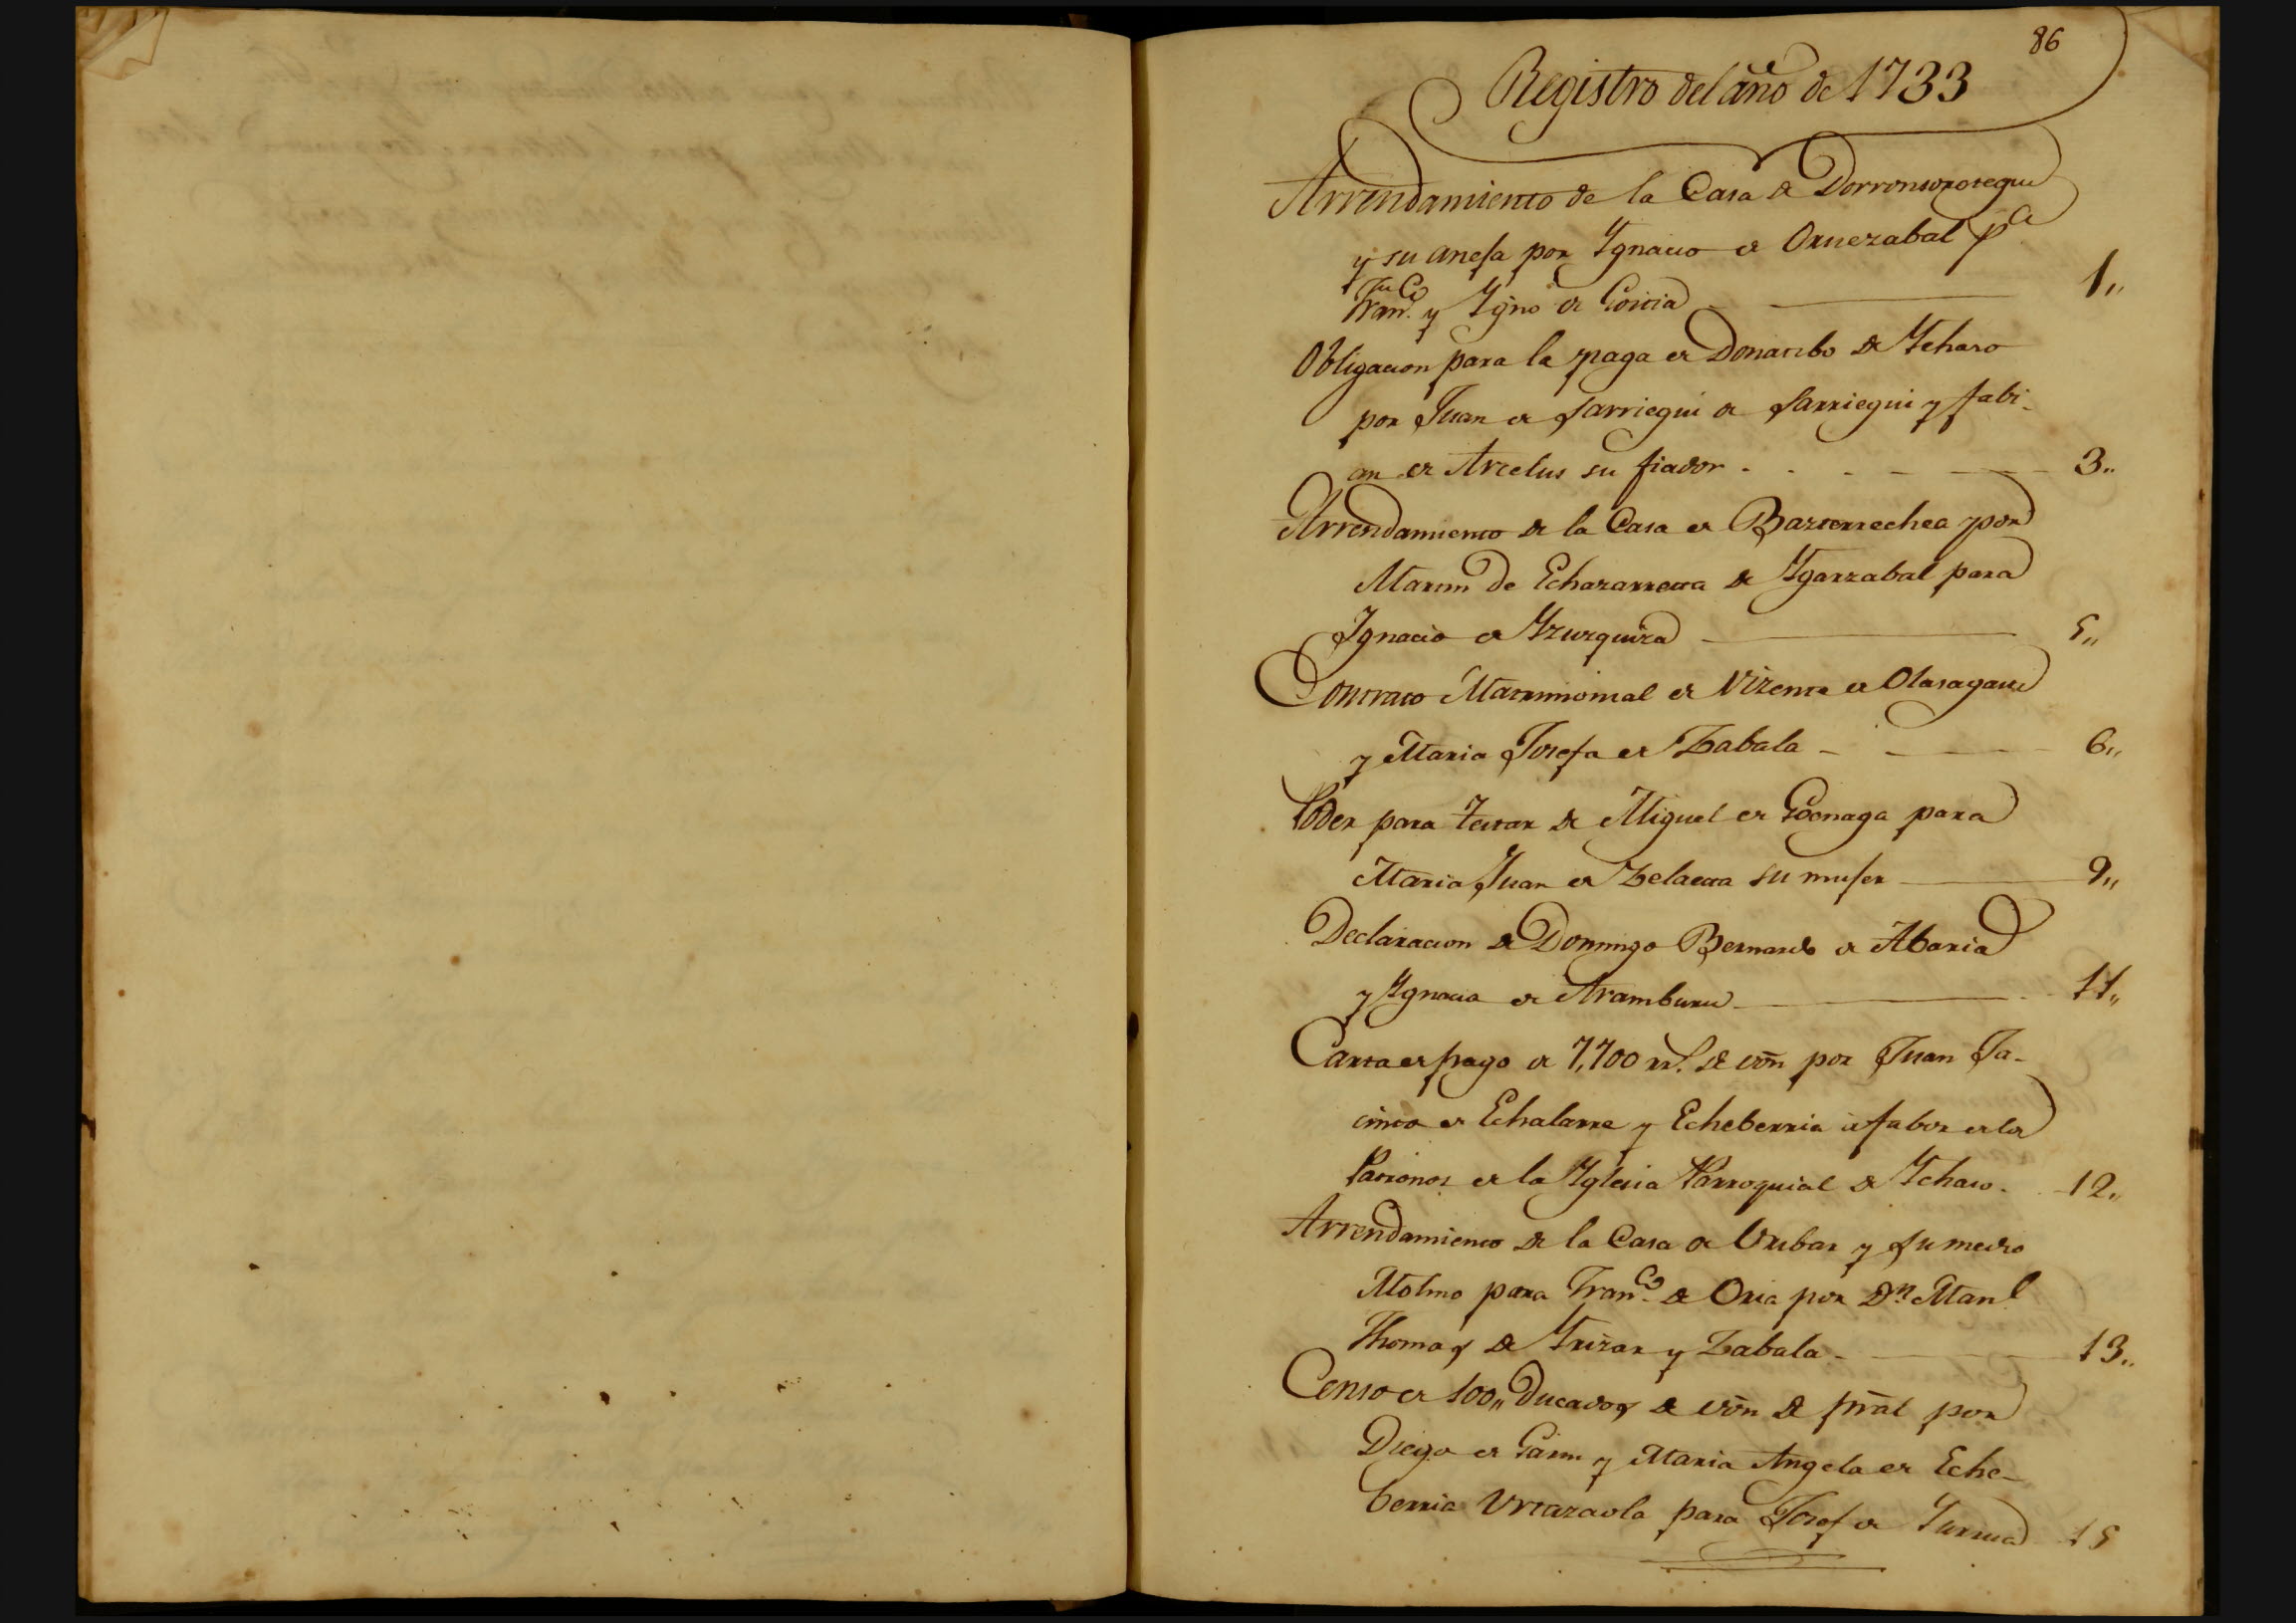 86
Registro del año de 1733
Arrendamiento de la Casa de Dorronsorotegui
y su anesa por Ygnacio de Oruezabal p.ª
Fran.co y Ygno de Goitia 1,,
Obligacion para la paga de Donatibo de Ychaso
por Juan de Sarriegui de Sarriegui y fabi-
an de Arcelus su fiador 3,,
Arrendamiento de la Casa de Basterrechea por
Martin de Echazarreta de Ygarzabal para
Ignacio de Yzurquiza 5,,
Contrato Matrimonial de Vizente de Olasagasti
y Maria Josefa de Zabala 6,,
Poder para testar de Miguel de Goenaga para
Maria Juan de Zelaeta su muser 9,,
Declaracion de Domingo Bernardo de Abaria
y Ygnacia de Aramburu 11,,
Carta de pago de 7,700 rr.s de von por Juan Ja-
cinto de Echalarre y Echeberria a fabor de los
Patronos de la Yglesia Parroquial de Ychaso 12,,
Arrendamiento de la Casa de Uribar y su medio
Molino para Fran.co de Oria por Dn. Manl
Thomas de Yrizar y Zabala 13,,
Censo de 100,, Ducados de von de pral por
Diego de Garin y Maria Angela de Eche-
berria Urtazaola para Josef de 15